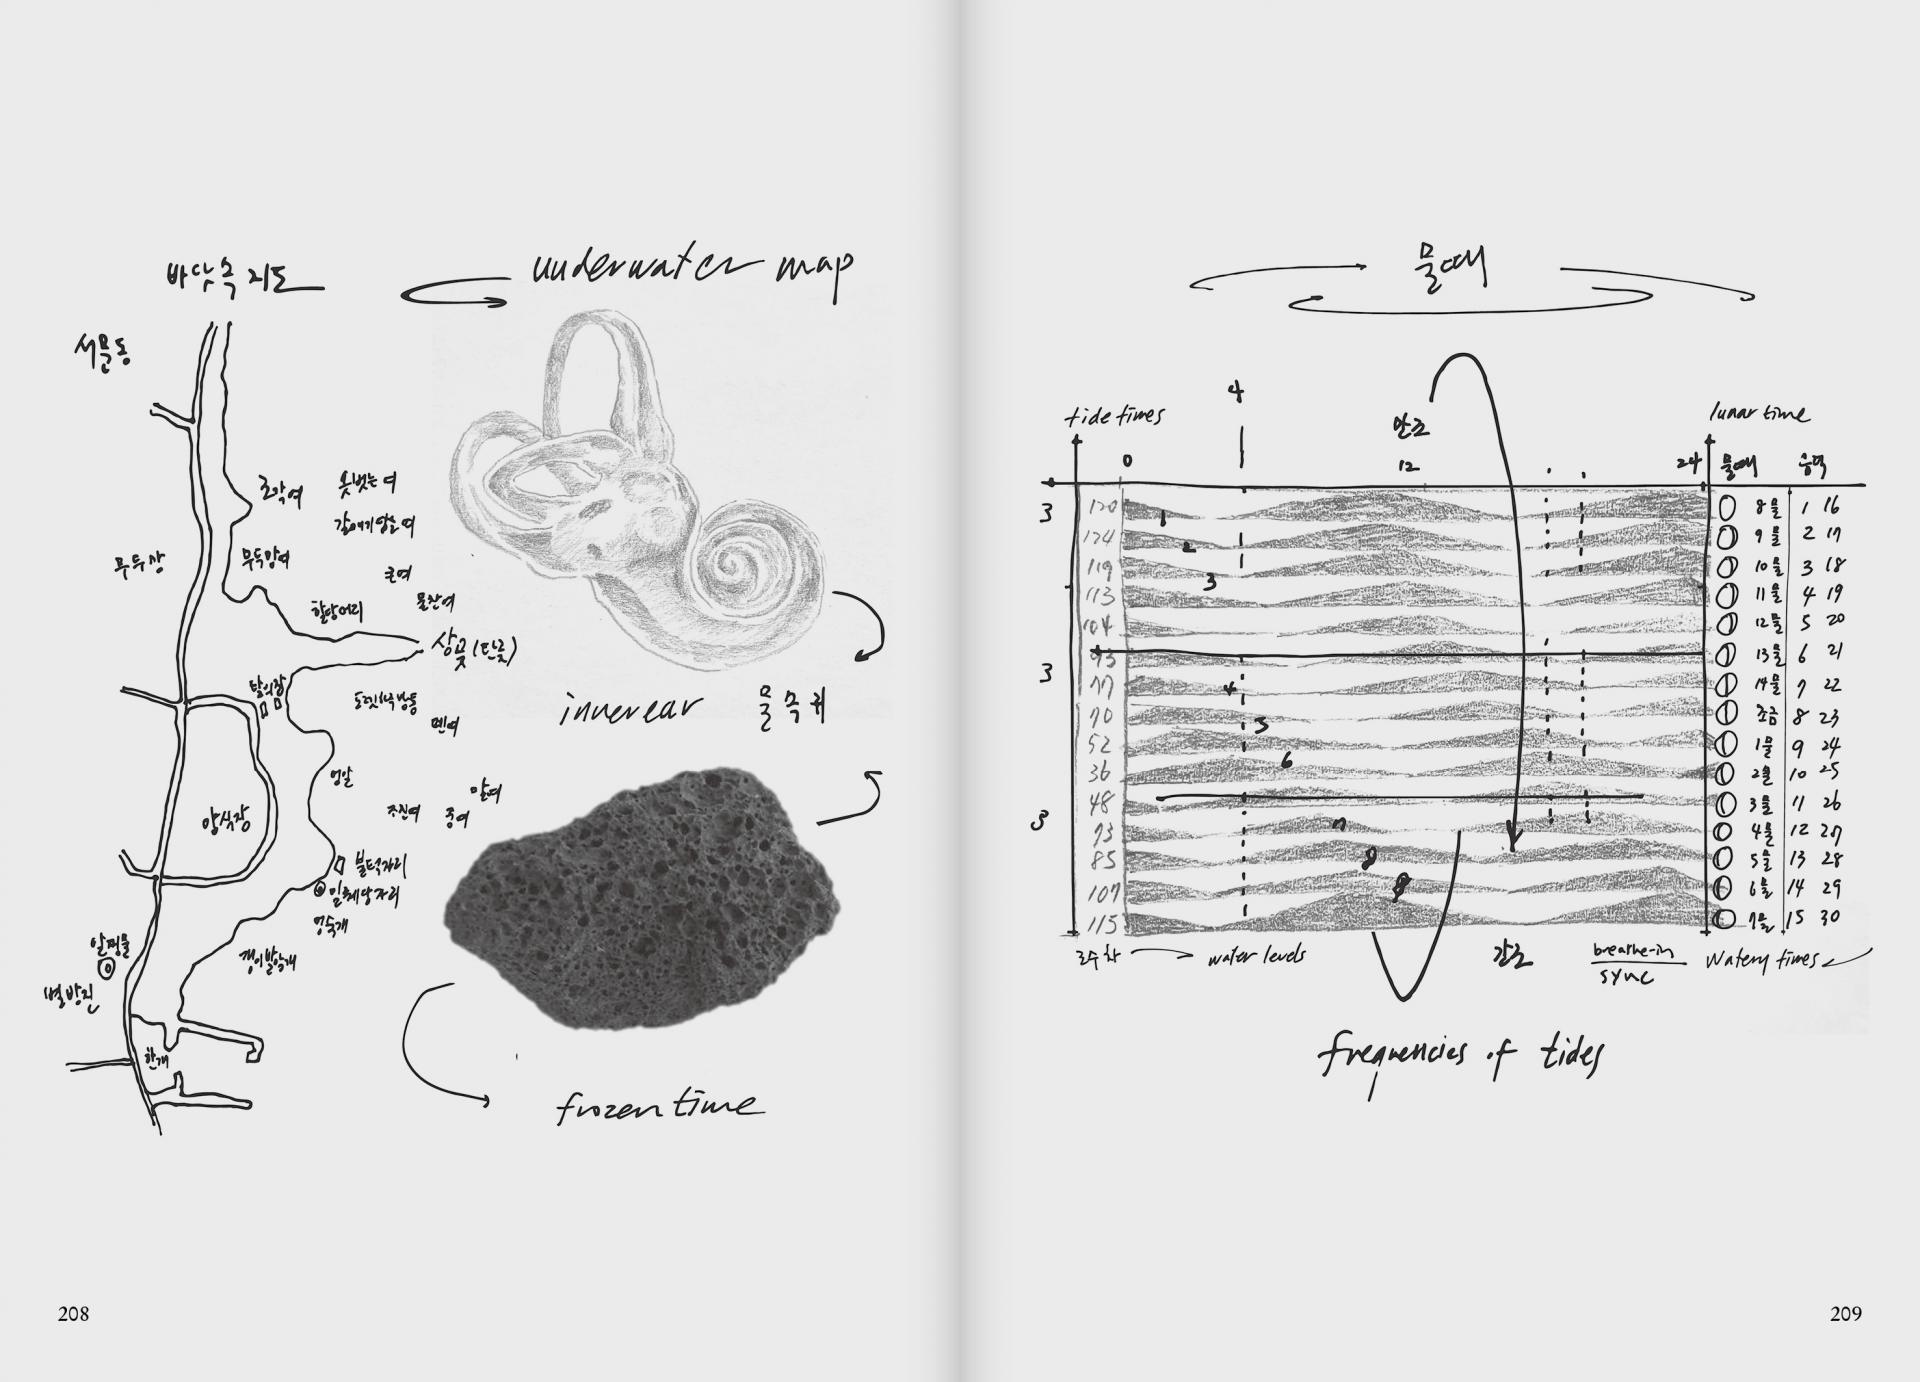 바닷속 지도
underwater map
서물동
조각여
옷벗는 여
갈매기앉는 여
무두망여
큰여
물찬여
할망머리
상곶(탄곶)
멘여
엉알
양식장
말여
중여
불턱자리
일뤠당자리
엉숙개
별방진
한개
inner ear
물 속 귀
frozen time
208
물때
tide times
4
만조
lunar time
0
12
24
물때
음력
3
120
1
8물 1 16
124
2
9물 2 17
119
3
10물 3 18
113
11물 4 19
104
12물 5 20
93
13물 6 21
3
77
4
14물 7 22
70
5
조금 8 23
52
6
1물 9 24
36
2물 10 25
48
3물 11 26
3
73
7
4물 12 27
85
8
5물 13 28
107
9
6물 14 29
115
7물 15 30
조수 차
water levels
간조
breathe-in
sync
Watery times
frequencies of tides
209